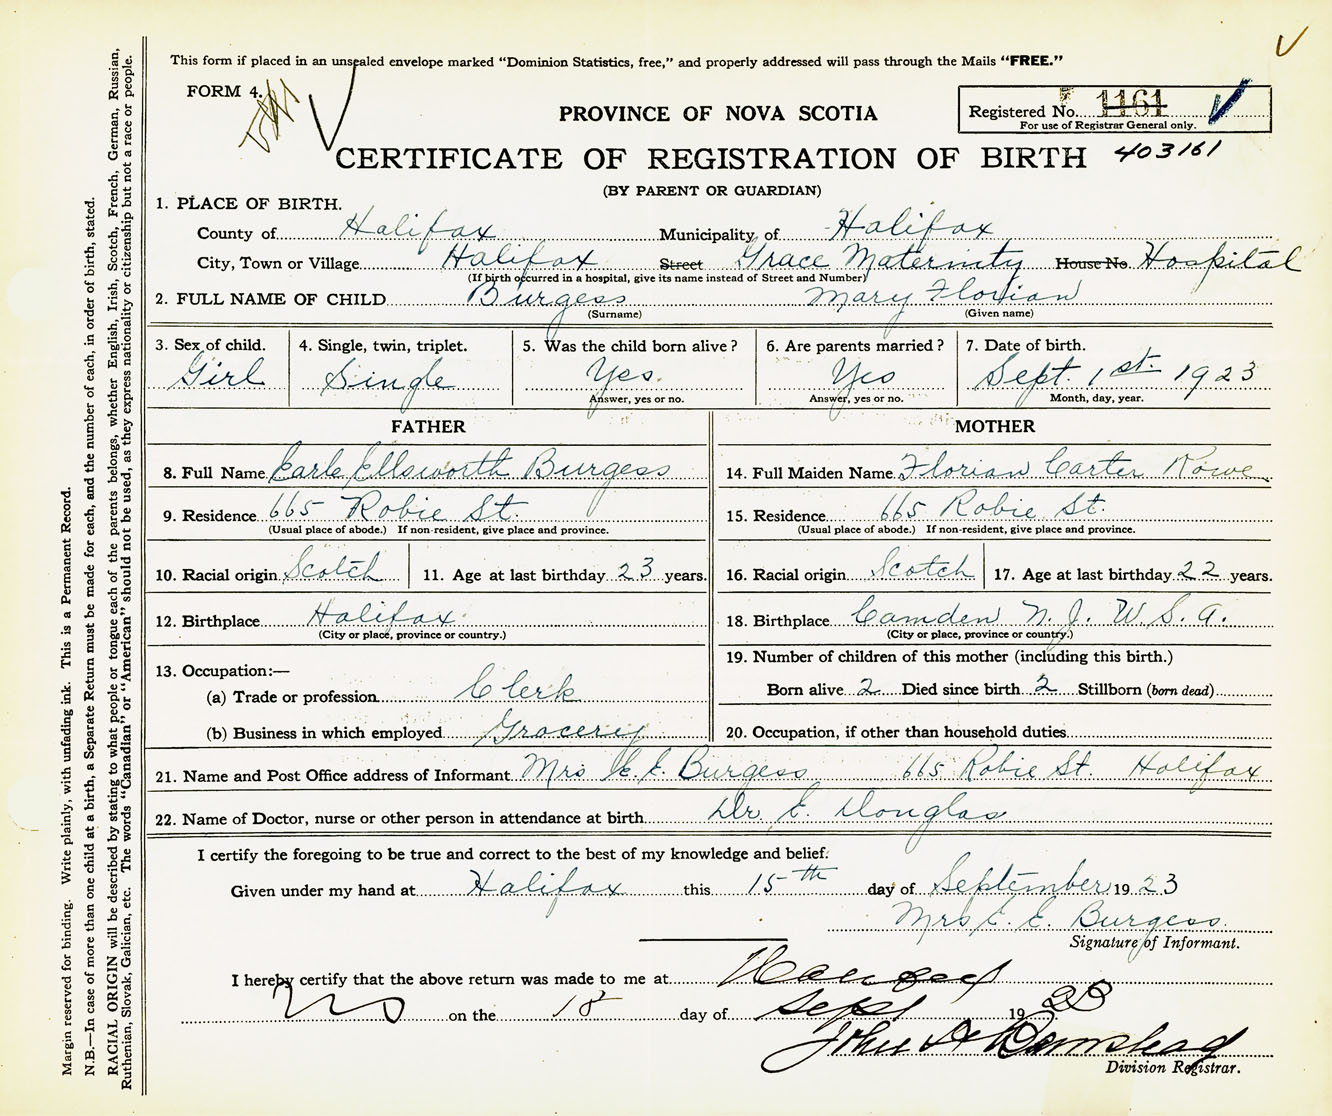 This form if placed in an unsealed envelope marked "Dominion Statistics, free," and properly addressed will pass through the Mails "FREE."
FORM 4.
PROVINCE OF NOVA SCOTIA
Registered No. 1161
For use of Registrar General only.
CERTIFICATE OF REGISTRATION OF BIRTH 403161
(BY PARENT OR GUARDIAN)
1. PLACE OF BIRTH.
County of Halifax Municipality of Halifax
City, Town or Village Halifax Street Grace Maternity House No. Hospital
(If birth occurred in a hospital, give its name instead of Street and Number)
2. FULL NAME OF CHILD Burgess Mary Florian
(Surname) (Given name)
3. Sex of child. 4. Single, twin, triplet. 5. Was the child born alive? 6. Are parents married? 7. Date of birth.
Girl Single Yes. Yes Sept. 1st. 1923
Answer, yes or no. Answer, yes or no. Month, day, year.
FATHER MOTHER
8. Full Name Earle Ellsworth Burgess 14. Full Maiden Name Florian Carter Rowe
9. Residence 665 Robie St. 15. Residence 665 Robie St.
(Usual place of abode.) If non-resident, give place and province. (Usual place of abode.) If non-resident, give place and province.
10. Racial origin Scotch 11. Age at last birthday 23 years. 16. Racial origin Scotch 17. Age at last birthday 22 years.
12. Birthplace Halifax. 18. Birthplace Camden N. J. U. S. A.
(City or place, province or country.) (City or place, province or country.)
13. Occupation:— 19. Number of children of this mother (including this birth.)
(a) Trade or profession Clerk Born alive 2 Died since birth 2 Stillborn (born dead)
(b) Business in which employed Grocery 20. Occupation, if other than household duties
21. Name and Post Office address of Informant Mrs E. E. Burgess 665 Robie St. Halifax
22. Name of Doctor, nurse or other person in attendance at birth Dr. E. Douglas
I certify the foregoing to be true and correct to the best of my knowledge and belief.
Given under my hand at Halifax this 15th day of September 1923
Mrs E. E. Burgess.
Signature of Informant.
I hereby certify that the above return was made to me at
NS on the 18 day of Sept 1923
John A
Division Registrar.
Margin reserved for binding. Write plainly, with unfading ink. This is a Permanent Record.
N.B.—In case of more than one child at a birth, a Separate Return must be made for each, and the number of each, in order of birth, stated.
RACIAL ORIGIN will be described by stating to what people or tongue each of the parents belongs, whether English, Irish, Scotch, French, German, Russian,
Ruthenian, Slovak, Galician, etc. The words "Canadian" or "American" should not be used, as they express nationality or citizenship but not a race or people.